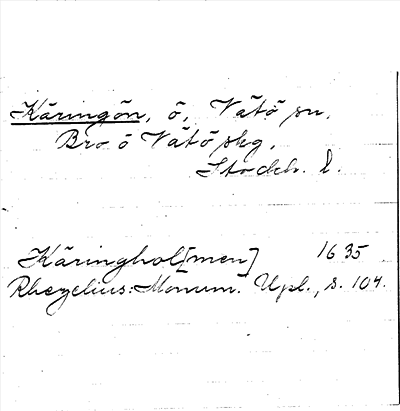 Käringön, ö, Vätö sn,
Bro o Vätö skg,
Stockh. l.
Käringhol[men] 1635
Rhezelius: Monum. Upl., s. 104.